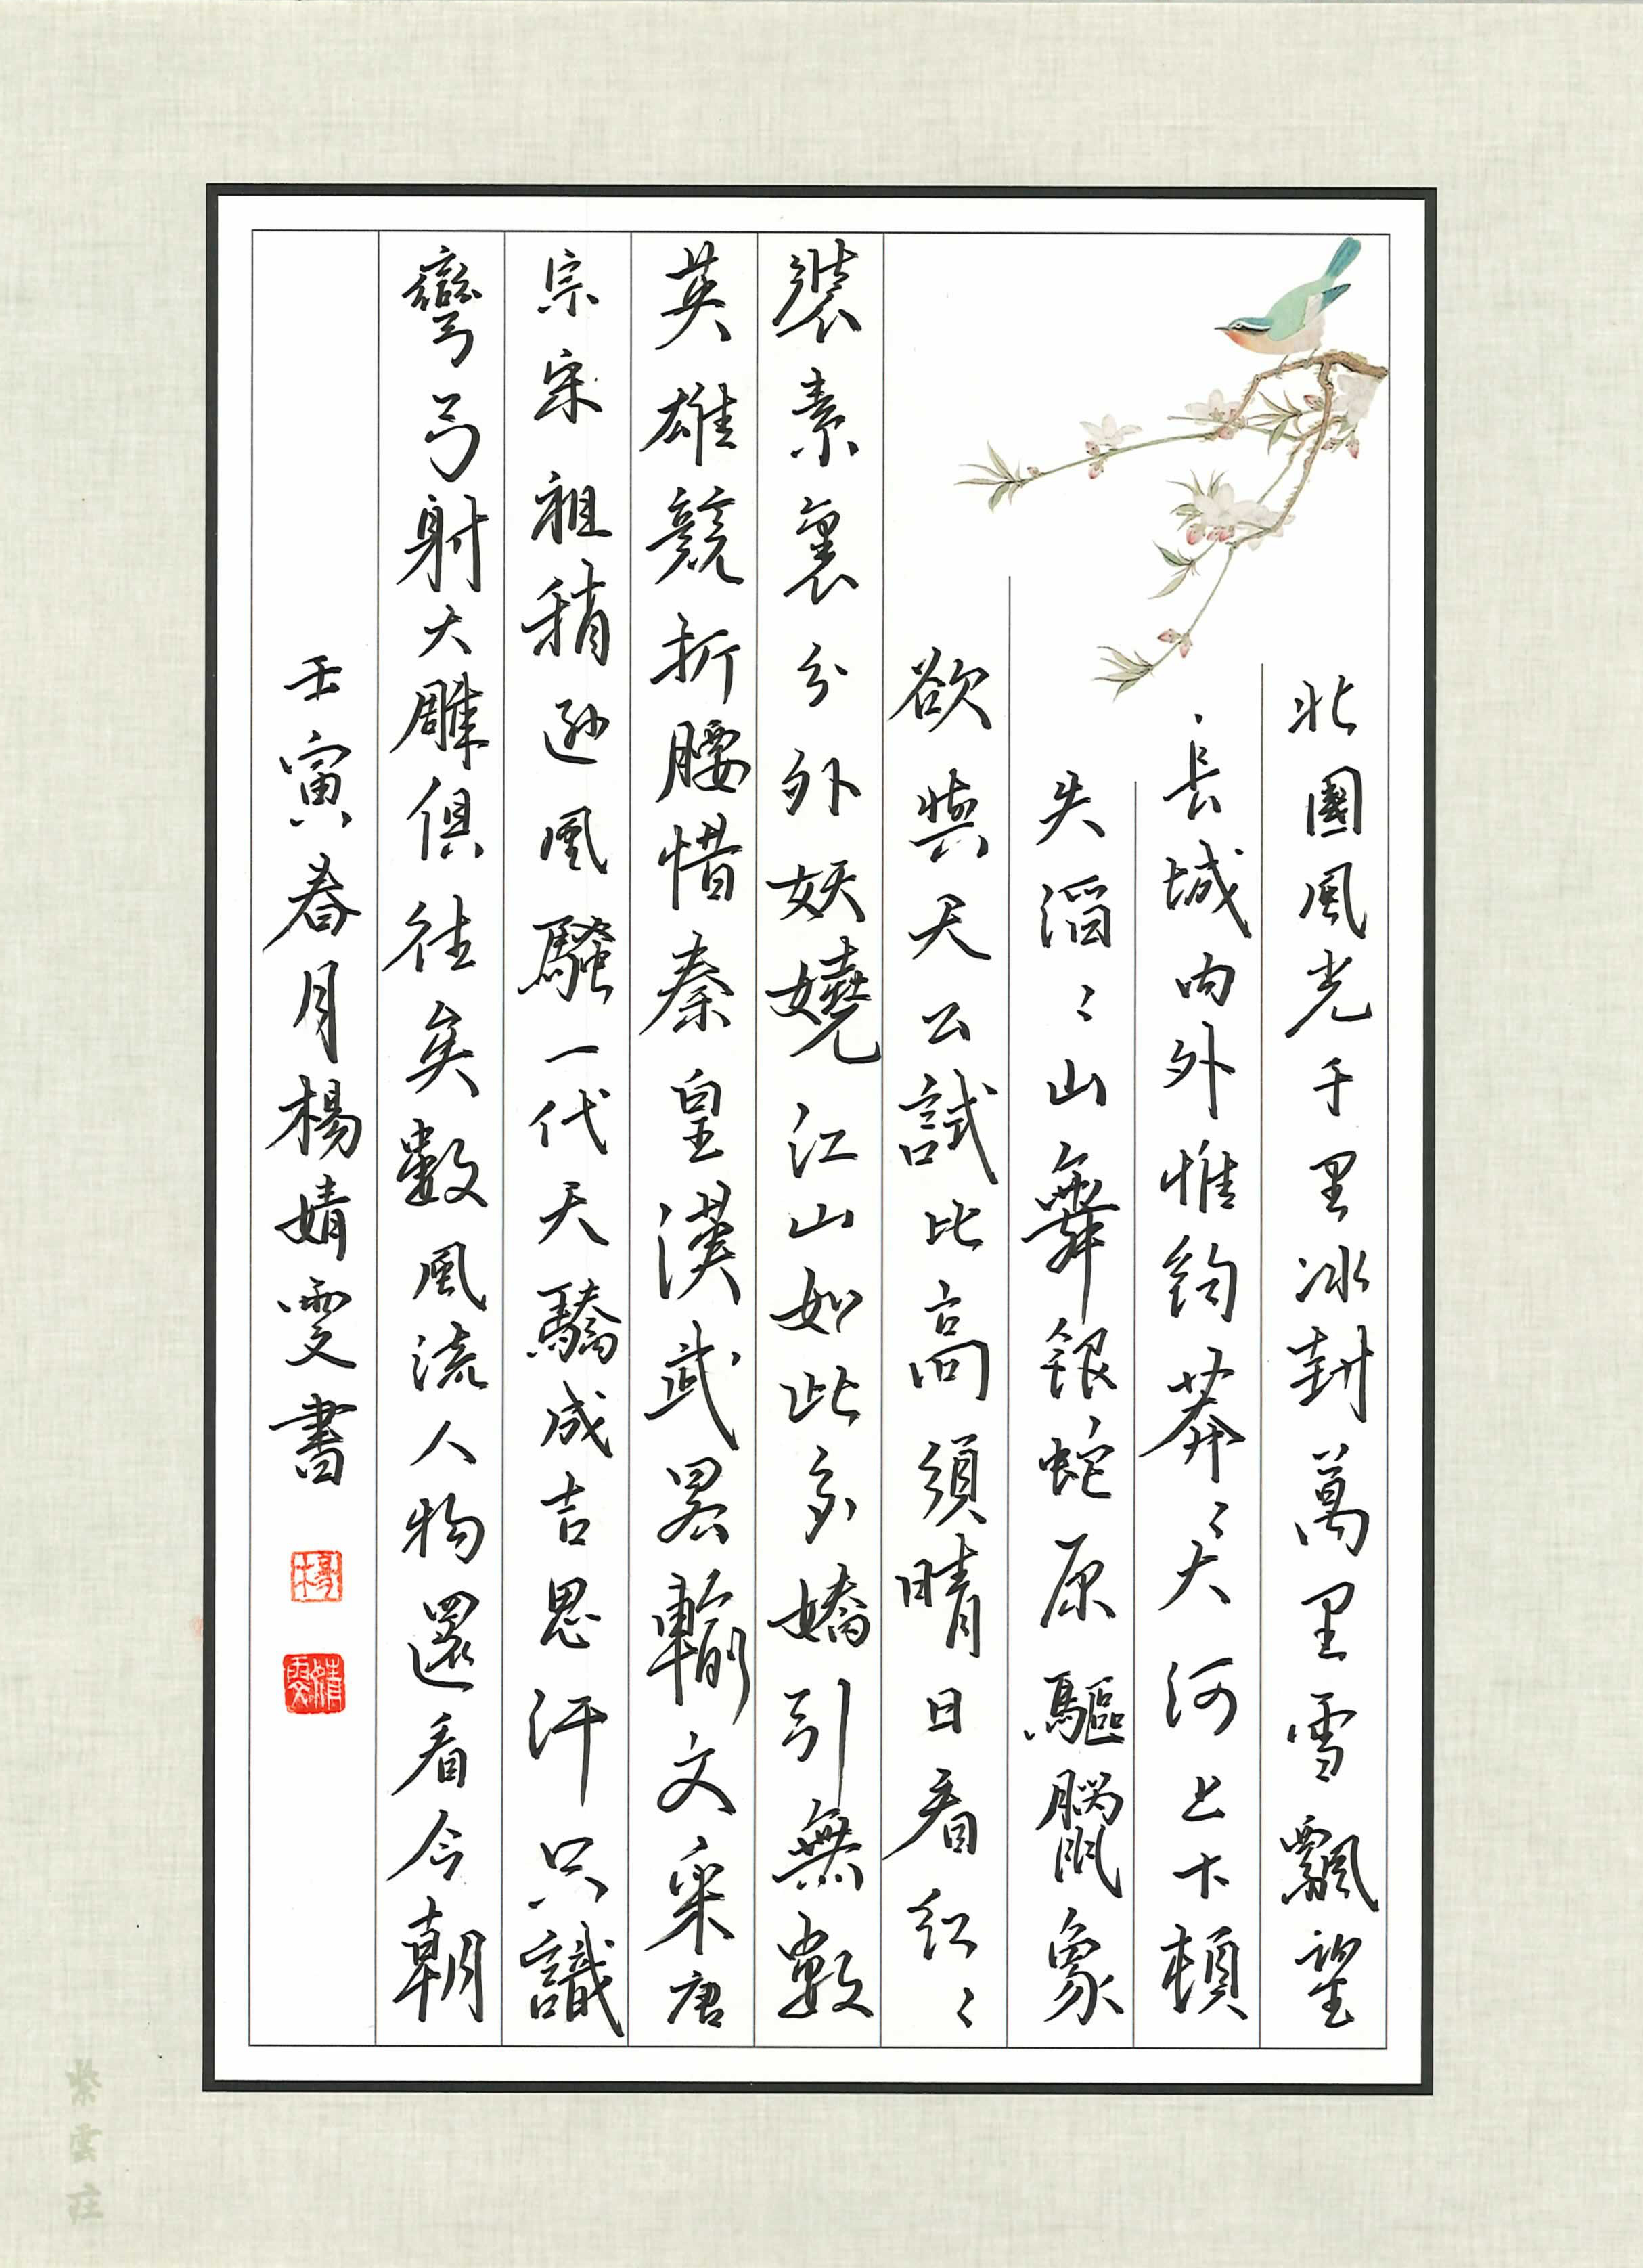 北國風光千里冰封萬里雪飄望
長城內外惟鈞莽〻大河上下頓
失滔〻山舞銀蛇原驅臘象
欲與天公試比高須晴日看紅〻
裝素裹分外妖嬈江山如此多嬌引無數
英雄競折腰惜秦皇漢武畧輸文采唐
宗宋祖稍遜風騷一代天驕成吉思汗只識
彎弓射大雕俱往矣數風流人物還看今朝
壬寅春月楊婧雯書
楊
婧雯
紫雲庄